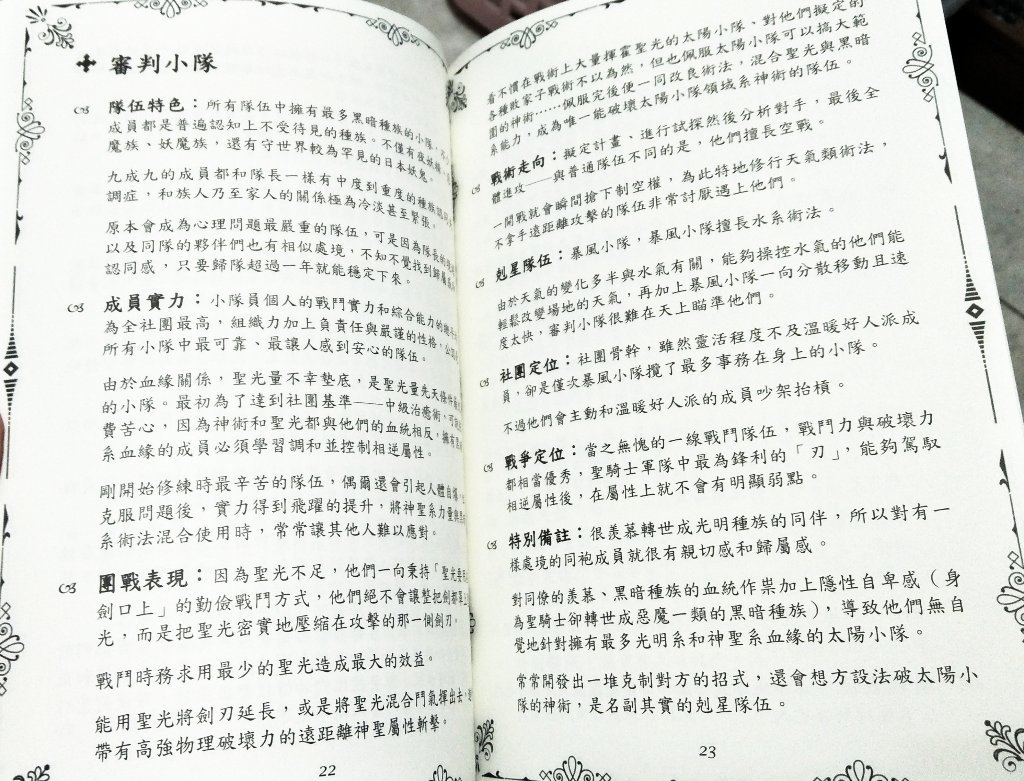 審判小隊
隊伍特色：所有隊伍中擁有最多黑暗種族的小隊，
成員都是普遍認知上不受待見的種族。不僅有夜妖精、
魔族、妖魔族，還有守世界較為罕見的日本妖鬼。
九成九的成員都和隊長一樣有中度到重度的種族認同
調症，和族人乃至家人的關係極為冷淡甚至緊張。
原本會成為心理問題最嚴重的隊伍，可是因為隊長的
以及同隊的夥伴們也有相似處境，不知不覺找到歸屬
認同感，只要歸隊超過一年就能穩定下來。
成員實力：小隊員個人的戰鬥實力和綜合能力的
為全社團最高，組織力加上負責任與嚴謹的性格，公認
所有小隊中最可靠、最讓人感到安心的隊伍。
由於血緣關係，聖光量不幸墊底，是聖光量先天條件
的小隊。最初為了達到社團基準——中級治癒術，可說
費苦心，因為神術和聖光都與他們的血統相反，擁有
系血緣的成員必須學習調和並控制相逆屬性。
剛開始修練時最辛苦的隊伍，偶爾還會引起人體自爆，
克服問題後，實力得到飛躍的提升，將神聖系力量與
系術法混合使用時，常常讓其他人難以應對。
團戰表現：因為聖光不足，他們一向秉持「聖光要用在
劍口上」的勤儉戰鬥方式，他們絕不會讓整把劍都
光，而是把聖光密實地壓縮在攻擊的那一個劍刃。
戰鬥時務求用最少的聖光造成最大的效益。
能用聖光將劍刃延長，或是將聖光混合鬥氣揮出去，
帶有高強物理破壞力的遠距離神聖屬性斬擊。
22
看不慣在戰術上大量揮霍聖光的太陽小隊、對他們擬定的
各種敗家子戰術不以為然，但也佩服太陽小隊可以搞大範
圍的神術……佩服完後便一同改良術法，混合聖光與黑暗
系能力，成為唯一能破壞太陽小隊領域系神術的隊伍。
戰術走向：擬定計畫、進行試探然後分析對手，最後全
體進攻——與普通隊伍不同的是，他們擅長空戰。
一開戰就會瞬間搶下制空權，為此特地修行天氣類術法，
不拿手遠距離攻擊的隊伍非常討厭遇上他們。
剋星隊伍：暴風小隊，暴風小隊擅長水系術法。
由於天氣的變化多半與水氣有關，能夠操控水氣的他們能
輕鬆改變場地的天氣，再加上暴風小隊一向分散移動且速
度太快，審判小隊很難在天上瞄準他們。
社團定位：社團骨幹，雖然靈活程度不及溫暖好人派成
員，卻是僅次暴風小隊攬了最多事務在身上的小隊。
不過他們會主動和溫暖好人派的成員吵架抬槓。
戰爭定位：當之無愧的一線戰鬥隊伍，戰鬥力與破壞力
都相當優秀，聖騎士軍隊中最為鋒利的「刃」，能夠駕馭
相逆屬性後，在屬性上就不會有明顯弱點。
特別備註：很羨慕轉世成光明種族的同伴，所以對有一
樣處境的同袍成員就很有親切感和歸屬感。
對同僚的羨慕、黑暗種族的血統作祟加上隱性自卑感（身
為聖騎士卻轉世成惡魔一類的黑暗種族），導致他們無自
覺地針對擁有最多光明系和神聖系血緣的太陽小隊。
常常開發出一堆克制對方的招式，還會想方設法破太陽小
隊的神術，是名副其實的剋星隊伍。
23